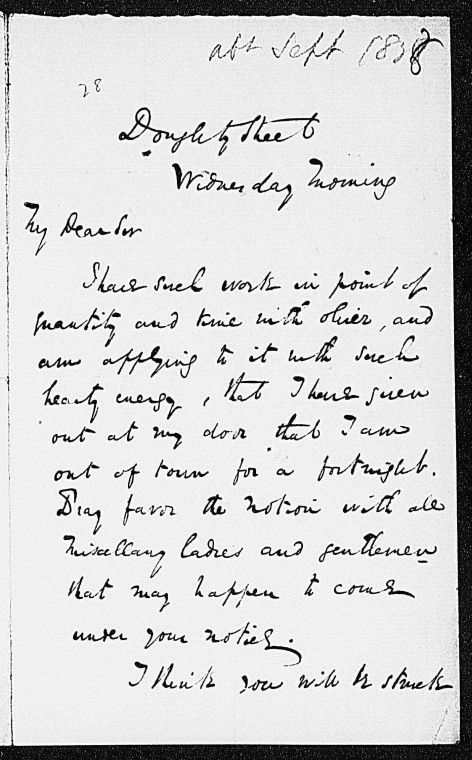 abt Sept 1838
28
Doughty Street
Wednesday Morning
My Dear Sir
I have such work in point of
quantity and time with Oliver, and
am applying to it with such
hearty energy, that I have given
out at my door that I am
out of town for a fortnight.
Pray favor the notion with all
Miscellany ladies and gentlemen
that may happen to come
under your notice.
I think you will be struck